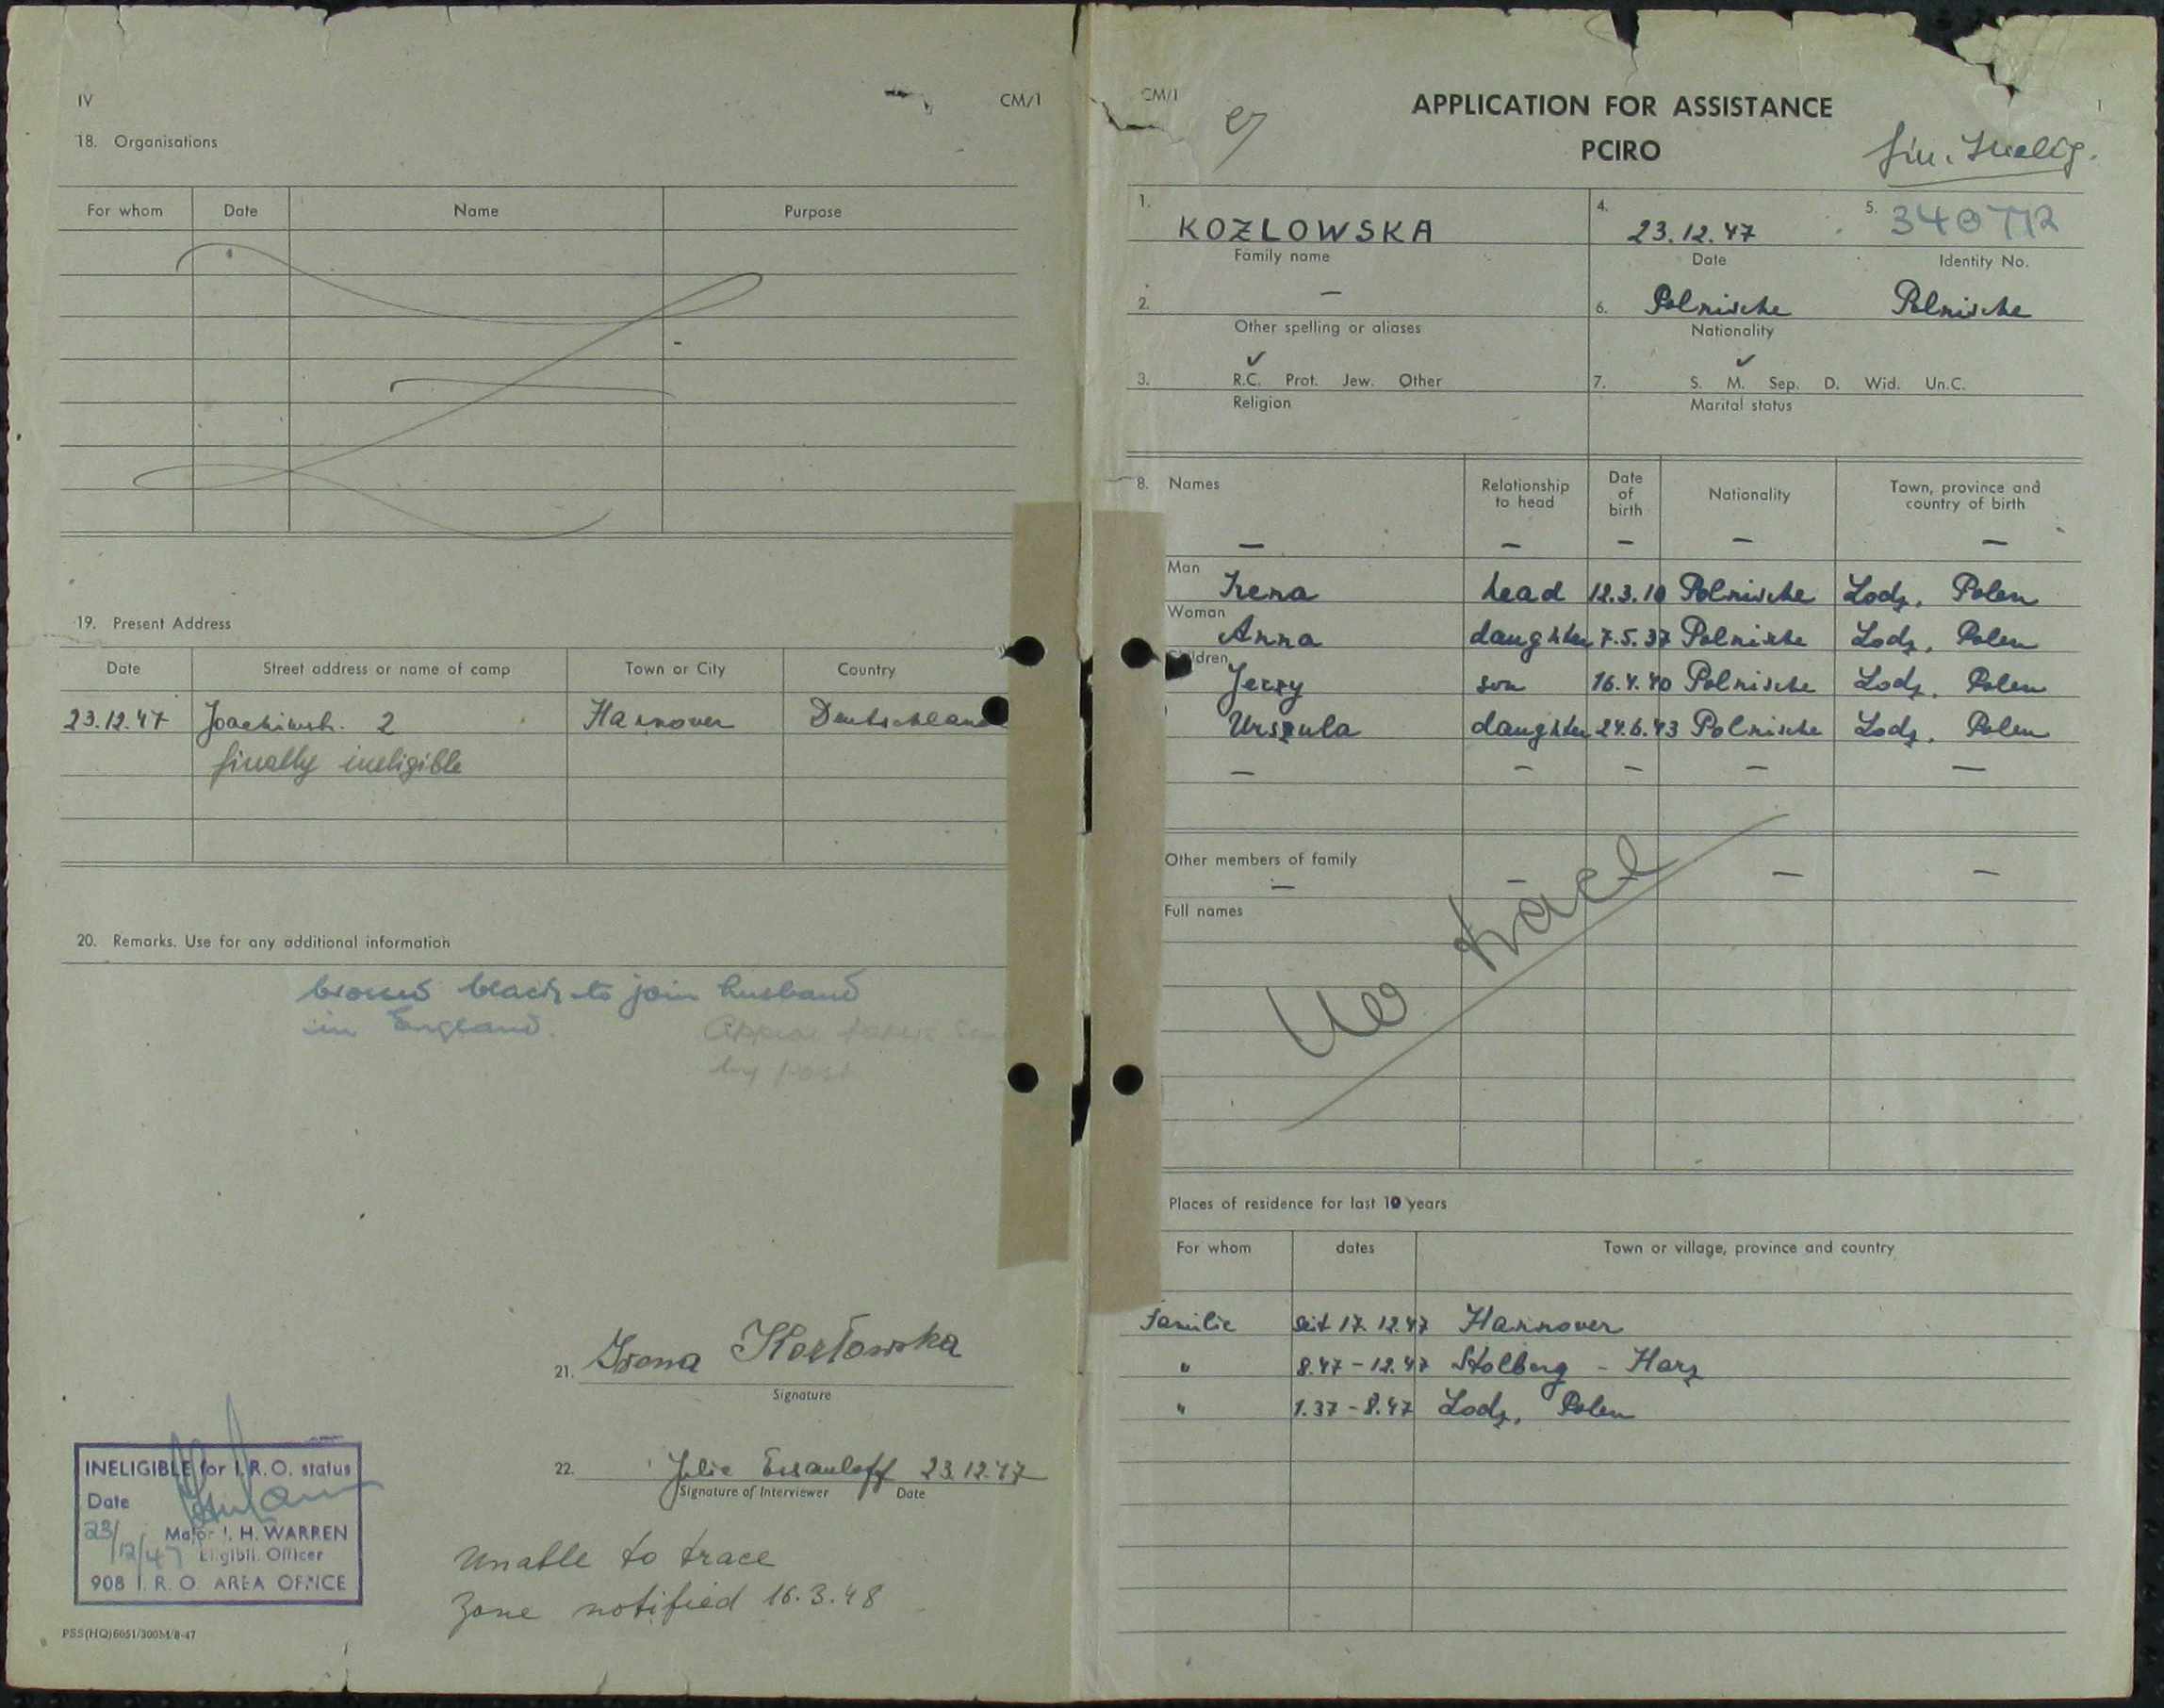 IV
CM/1
18. Organisations
For whom Date Name Purpose
19. Present Address
Date Street address or name of camp Town or City Country
23.12.47 Joachimstr. 2 Hannover Deutschland
finally ineligible
20. Remarks. Use for any additional information
black to join husband
in England.
by post
21. Irena Kozłowska
Signature
22. Julie 23.12.47
Signature of Interviewer Date
INELIGIBLE for I.R.O. status
Date
23/12/47
Major I. H. WARREN
Eligibil. Officer
908 I. R. O. AREA OFFICE
Unable to trace
Zone notified 16.3.48
PSS(HQ)6051/300M/8-47
CM/1
1
APPLICATION FOR ASSISTANCE
PCIRO
fin. Inelig.
1. KOZLOWSKA
Family name
4. 23.12.47
Date
5. 340772
Identity No.
2. —
Other spelling or aliases
6. Polnische Polnische
Nationality
3. R.C. Prot. Jew. Other
Religion
7. S. M. Sep. D. Wid. Un.C.
Marital status
8. Names Relationship to head Date of birth Nationality Town, province and country of birth
— — — — —
Man
Irena head 12.3.10 Polnische Lodz, Polen
Woman
Anna daughter 7.5.37 Polnische Lodz, Polen
Children
Jerzy son 16.4.40 Polnische Lodz, Polen
Urszula daughter 24.6.43 Polnische Lodz, Polen
— — — — —
Other members of family
— — — —
Full names
No trace
Places of residence for last 10 years
For whom dates Town or village, province and country
Familie seit 17.12.47 Hannover
" 8.47 - 12.47 Stolberg - Harz
" 1.37 - 8.47 Lodz, Polen